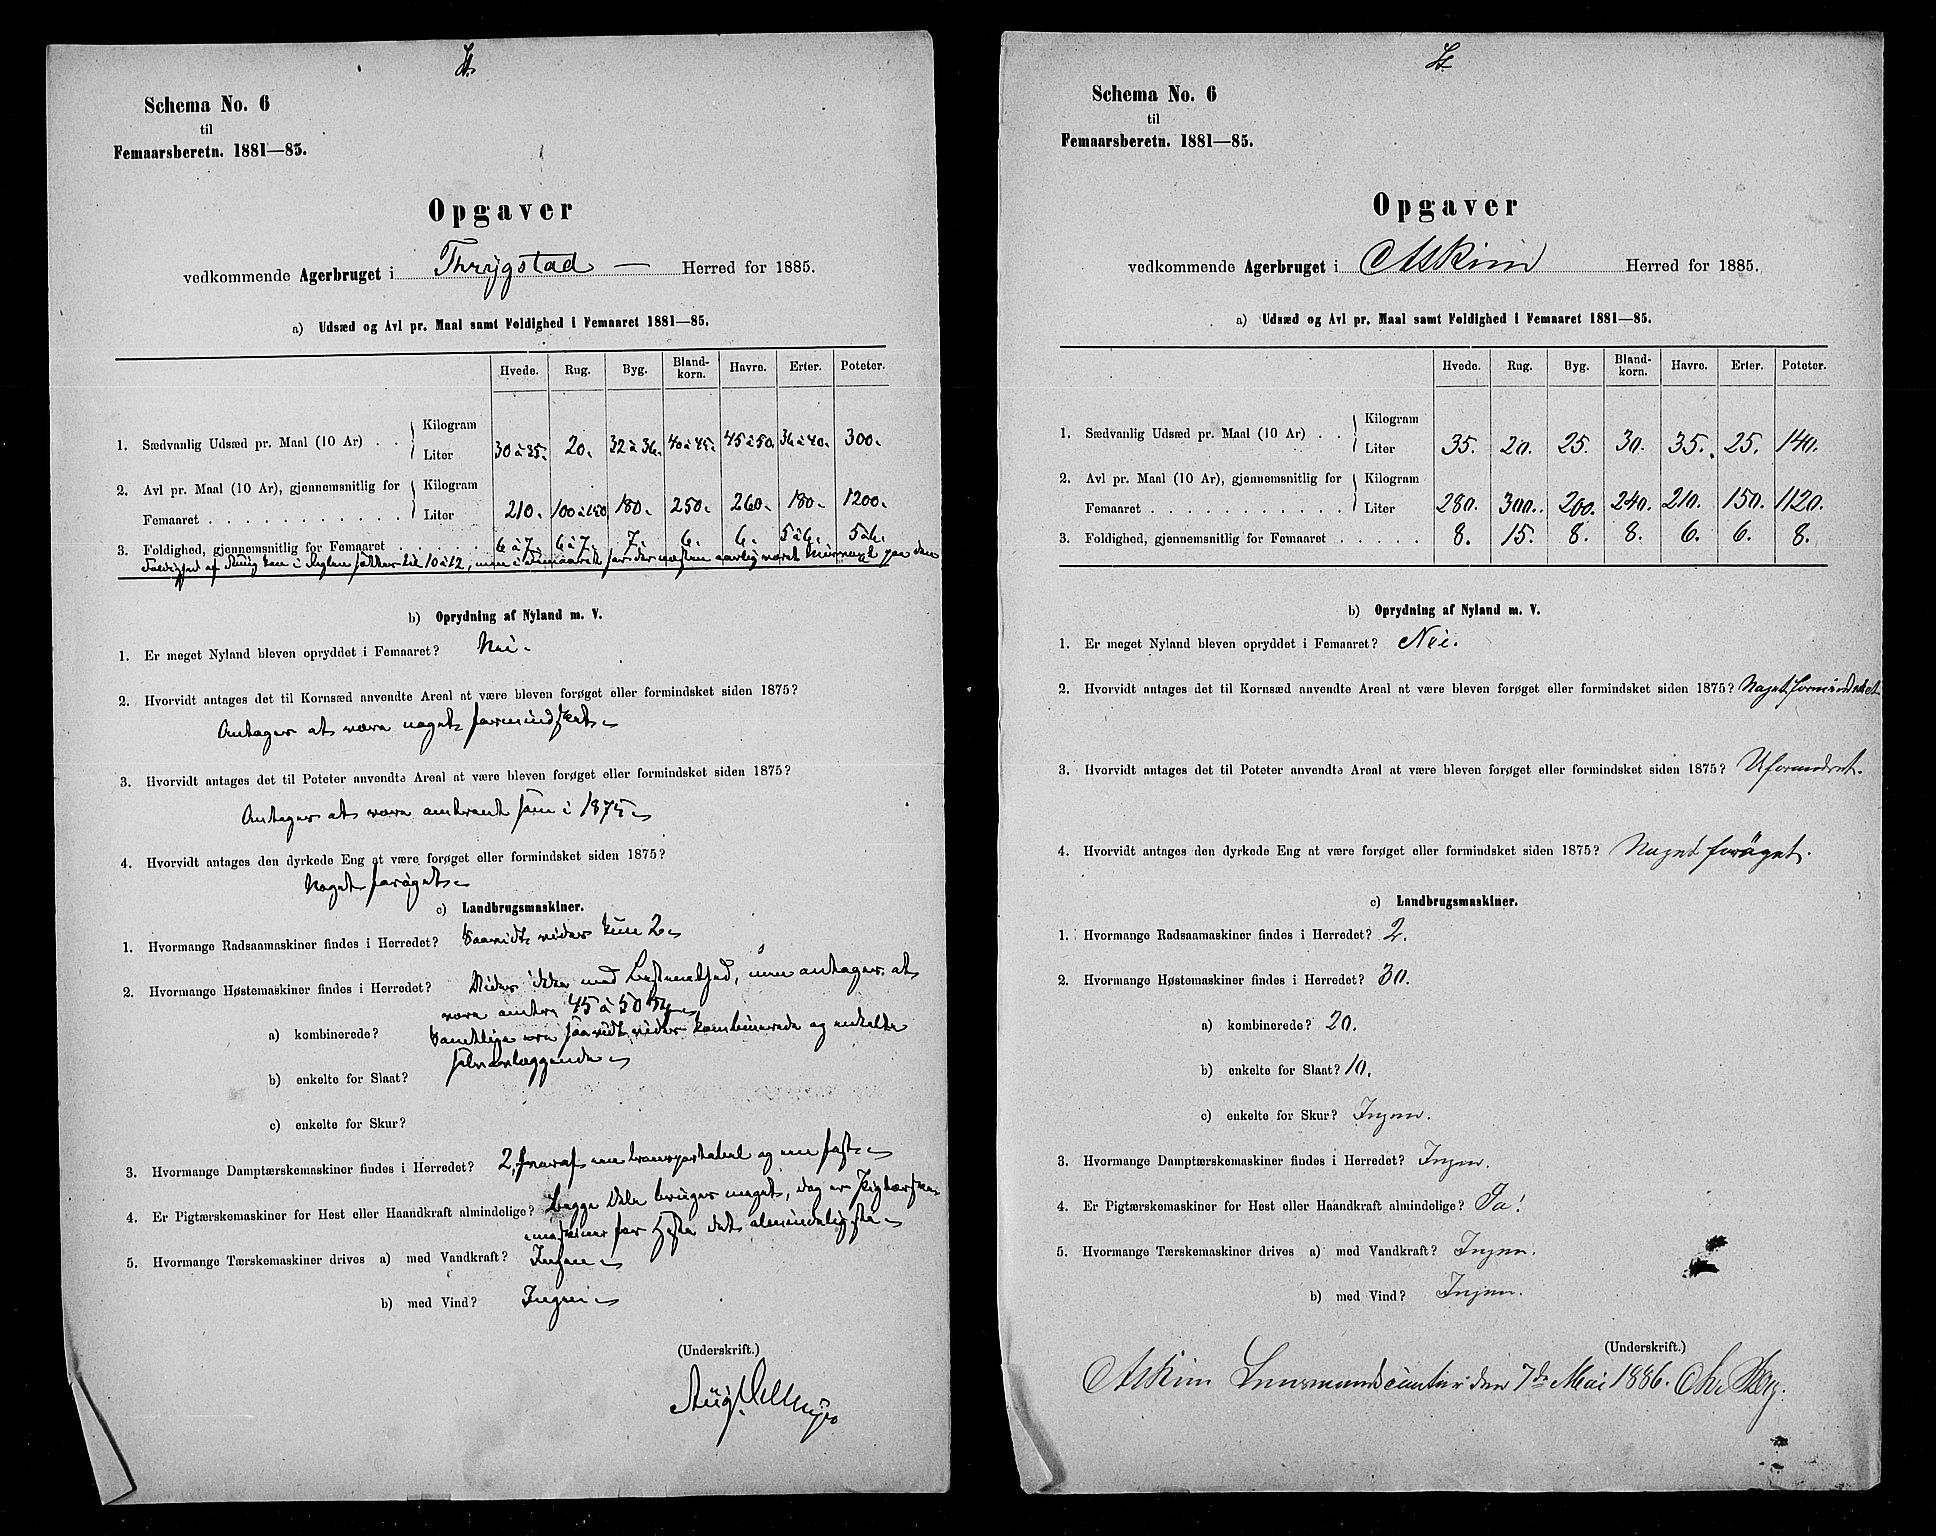 Schema No. 6
til
Femaarsberetn. 1881—85.
Opgaver
vedkommende Agerbruget i Thrygstad — Herred for 1885.
a) Udsæd og Avl pr. Maal samt Foldighed i Femaaret 1881—85.
Hvede. Rug. Byg. Bland-korn. Havre. Erter. Poteter.
1. Sædvanlig Udsæd pr. Maal (10 Ar) . . Kilogram
Liter 30 à 35. 20. 32 à 36. 40 à 45. 45 à 50. 36 à 40. 300.
2. Avl pr. Maal (10 Ar), gjennemsnitlig for Kilogram
Femaaret . . . . . . . . . . . Liter 210. 100 à 150 180. 250. 260. 180. 1200.
3. Foldighed, gjennemsnitlig for Femaaret . . . . . 6 à 7. 6 à 7. 7. 6. 6. 5 à 6. 5 à 6.
Foldighed af Rug kan i Reglen sættes til 10 à 12, men i Femaaret har der næsten aarlig været
b) Oprydning af Nyland m. V.
1. Er meget Nyland bleven opryddet i Femaaret? Nei.
2. Hvorvidt antages det til Kornsæd anvendte Areal at være bleven forøget eller formindsket siden 1875?
Antages at være noget formindsket
3. Hvorvidt antages det til Poteter anvendte Areal at være bleven forøget eller formindsket siden 1875?
Antages at være omtrent som i 1875
4. Hvorvidt antages den dyrkede Eng at være forøget eller formindsket siden 1875?
Noget forøget
c) Landbrugsmaskiner.
1. Hvormange Radsaamaskiner findes i Herredet? Saavidt vides kun 2
2. Hvormange Høstemaskiner findes i Herredet? Vides ikke med Bestemthed, men antages at
være omtr. 45 à 50 Stk
a) kombinerede? Samtlige ere saavidt vides kombinerede og enkelte
selvaflæggende
b) enkelte for Slaat?
c) enkelte for Skur?
3. Hvormange Damptærskemaskiner findes i Herredet? 2, hvoraf en transportabel og en fast
4. Er Pigtærskemaskiner for Hest eller Haandkraft almindelige? Begge Dele bruges meget, dog er Pigtærske-
maskiner for Heste det almindeligste
5. Hvormange Tærskemaskiner drives a) med Vandkraft? Ingen
b) med Vind? Ingen
(Underskrift.)
Schema No. 6
til
Femaarsberetn. 1881—85.
Opgaver
vedkommende Agerbruget i Askim Herred for 1885.
a) Udsæd og Avl pr. Maal samt Foldighed i Femaaret 1881—85.
Hvede. Rug. Byg. Bland-korn. Havre. Erter. Poteter.
1. Sædvanlig Udsæd pr. Maal (10 Ar) . . Kilogram
Liter 35. 20. 25. 30. 35. 25. 140.
2. Avl pr. Maal (10 Ar), gjennemsnitlig for Kilogram
Femaaret . . . . . . . . . . . Liter 280. 300. 200. 240. 210. 150. 1120.
3. Foldighed, gjennemsnitlig for Femaaret . . . . . 8. 15. 8. 8. 6. 6. 8.
b) Oprydning af Nyland m. V.
1. Er meget Nyland bleven opryddet i Femaaret? Nei.
2. Hvorvidt antages det til Kornsæd anvendte Areal at være bleven forøget eller formindsket siden 1875? Noget formindsket
3. Hvorvidt antages det til Poteter anvendte Areal at være bleven forøget eller formindsket siden 1875? Uforandret.
4. Hvorvidt antages den dyrkede Eng at være forøget eller formindsket siden 1875? Noget forøget.
c) Landbrugsmaskiner.
1. Hvormange Radsaamaskiner findes i Herredet? 2.
2. Hvormange Høstemaskiner findes i Herredet? 30.
a) kombinerede? 20.
b) enkelte for Slaat? 10.
c) enkelte for Skur? Ingen.
3. Hvormange Damptærskemaskiner findes i Herredet? Ingen.
4. Er Pigtærskemaskiner for Hest eller Haandkraft almindelige? Ja!
5. Hvormange Tærskemaskiner drives a) med Vandkraft? Ingen.
b) med Vind? Ingen.
(Underskrift.)
Askim Lensmandscontor den 7de Mai 1886. Chr Berg.